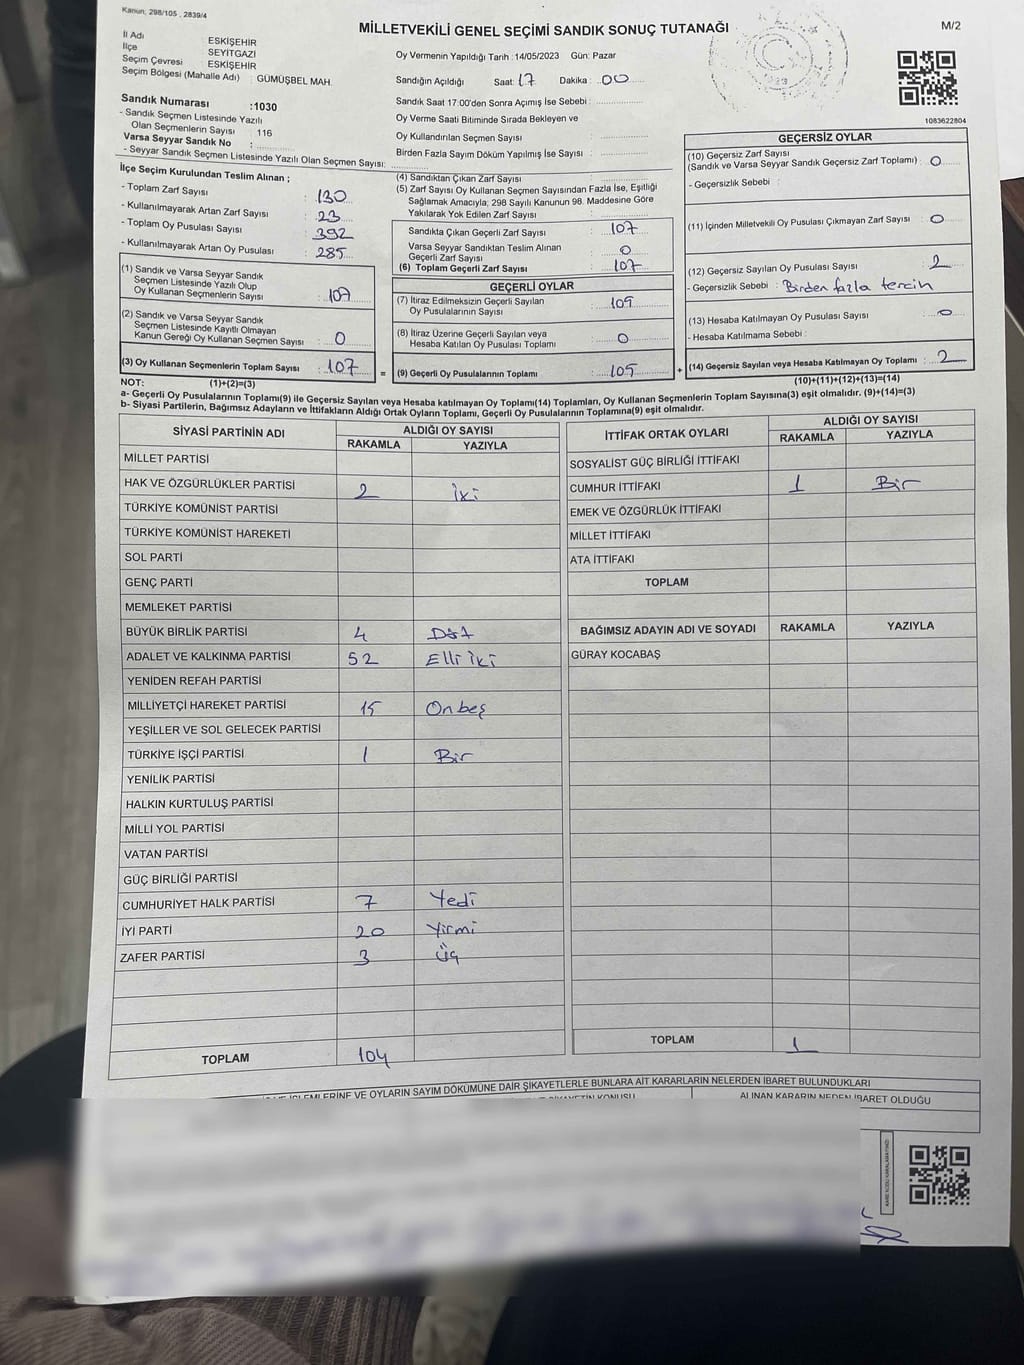 Kanun; 298/105 , 2839/4
MİLLETVEKİLİ GENEL SEÇİMİ SANDIK SONUÇ TUTANAĞI
M/2
İl Adı ESKİŞEHİR
İlçe SEYİTGAZİ
Seçim Çevresi ESKİŞEHİR
Seçim Bölgesi (Mahalle Adı) : GÜMÜŞBEL MAH.
Sandık Numarası :1030
- Sandık Seçmen Listesinde Yazılı
Olan Seçmenlerin Sayısı : 116
Varsa Seyyar Sandık No :
- Seyyar Sandık Seçmen Listesinde Yazılı Olan Seçmen Sayısı:
Oy Vermenin Yapıldığı Tarih : 14/05/2023 Gün: Pazar
Sandığın Açıldığı Saat: 17 Dakika : 00
Sandık Saat 17:00'den Sonra Açımış İse Sebebi :
Oy Verme Saati Bitiminde Sırada Bekleyen ve
Oy Kullandırılan Seçmen Sayısı :
Birden Fazla Sayım Döküm Yapılmış İse Sayısı :
1083622804
İlçe Seçim Kurulundan Teslim Alınan ;
- Toplam Zarf Sayısı : 130
- Kullanılmayarak Artan Zarf Sayısı : 23
- Toplam Oy Pusulası Sayısı : 392
- Kullanılmayarak Artan Oy Pusulası : 285
(1) Sandık ve Varsa Seyyar Sandık
Seçmen Listesinde Yazılı Olup
Oy Kullanan Seçmenlerin Sayısı : 107
(2) Sandık ve Varsa Seyyar Sandık
Seçmen Listesinde Kayıtlı Olmayan
Kanun Gereği Oy Kullanan Seçmen Sayısı : 0
(3) Oy Kullanan Seçmenlerin Toplam Sayısı : 107
(4) Sandıktan Çıkan Zarf Sayısı :
(5) Zarf Sayısı Oy Kullanan Seçmen Sayısından Fazla İse, Eşitliği
Sağlamak Amacıyla; 298 Sayılı Kanunun 98. Maddesine Göre
Yakılarak Yok Edilen Zarf Sayısı :
Sandıkta Çıkan Geçerli Zarf Sayısı : 107
Varsa Seyyar Sandıktan Teslim Alınan
Geçerli Zarf Sayısı : 0
(6) Toplam Geçerli Zarf Sayısı : 107
GEÇERLİ OYLAR
(7) İtiraz Edilmeksizin Geçerli Sayılan
Oy Pusulalarının Sayısı : 105
(8) İtiraz Üzerine Geçerli Sayılan veya
Hesaba Katılan Oy Pusulası Toplamı : 0
= (9) Geçerli Oy Pusulalarının Toplamı : 105
GEÇERSİZ OYLAR
(10) Geçersiz Zarf Sayısı
(Sandık ve Varsa Seyyar Sandık Geçersiz Zarf Toplamı) : 0
- Geçersizlik Sebebi :
(11) İçinden Milletvekili Oy Pusulası Çıkmayan Zarf Sayısı : 0
(12) Geçersiz Sayılan Oy Pusulası Sayısı : 2
- Geçersizlik Sebebi : Birden fazla tercih
(13) Hesaba Katılmayan Oy Pusulası Sayısı : 0
- Hesaba Katılmama Sebebi :
+ (14) Geçersiz Sayılan veya Hesaba Katılmayan Oy Toplamı : 2
NOT: (1)+(2)=(3)
(10)+(11)+(12)+(13)=(14)
a- Geçerli Oy Pusulalarının Toplamı(9) ile Geçersiz Sayılan veya Hesaba katılmayan Oy Toplamı(14) Toplamları, Oy Kullanan Seçmenlerin Toplam Sayısına(3) eşit olmalıdır. (9)+(14)=(3)
b- Siyasi Partilerin, Bağımsız Adayların ve İttifakların Aldığı Ortak Oyların Toplamı, Geçerli Oy Pusulalarının Toplamına(9) eşit olmalıdır.
SİYASİ PARTİNİN ADI
ALDIĞI OY SAYISI
RAKAMLA YAZIYLA
MİLLET PARTİSİ
HAK VE ÖZGÜRLÜKLER PARTİSİ 2 iki
TÜRKİYE KOMÜNİST PARTİSİ
TÜRKİYE KOMÜNİST HAREKETİ
SOL PARTİ
GENÇ PARTİ
MEMLEKET PARTİSİ
BÜYÜK BİRLİK PARTİSİ 4 Dört
ADALET VE KALKINMA PARTİSİ 52 Elli iki
YENİDEN REFAH PARTİSİ
MİLLİYETÇİ HAREKET PARTİSİ 15 Onbeş
YEŞİLLER VE SOL GELECEK PARTİSİ
TÜRKİYE İŞÇİ PARTİSİ 1 Bir
YENİLİK PARTİSİ
HALKIN KURTULUŞ PARTİSİ
MİLLİ YOL PARTİSİ
VATAN PARTİSİ
GÜÇ BİRLİĞİ PARTİSİ
CUMHURİYET HALK PARTİSİ 7 Yedi
İYİ PARTİ 20 Yirmi
ZAFER PARTİSİ 3 Üç
TOPLAM 104
İTTİFAK ORTAK OYLARI
ALDIĞI OY SAYISI
RAKAMLA YAZIYLA
SOSYALİST GÜÇ BİRLİĞİ İTTİFAKI
CUMHUR İTTİFAKI 1 Bir
EMEK VE ÖZGÜRLÜK İTTİFAKI
MİLLET İTTİFAKI
ATA İTTİFAKI
TOPLAM
BAĞIMSIZ ADAYIN ADI VE SOYADI RAKAMLA YAZIYLA
GÜRAY KOCABAŞ
TOPLAM 1
İŞLEMLERİNE VE OYLARIN SAYIM DÖKÜMÜNE DAİR ŞİKAYETLERLE BUNLARA AİT KARARLARIN NELERDEN İBARET BULUNDUKLARI
ALINAN KARARIN NEDEN İBARET OLDUĞU